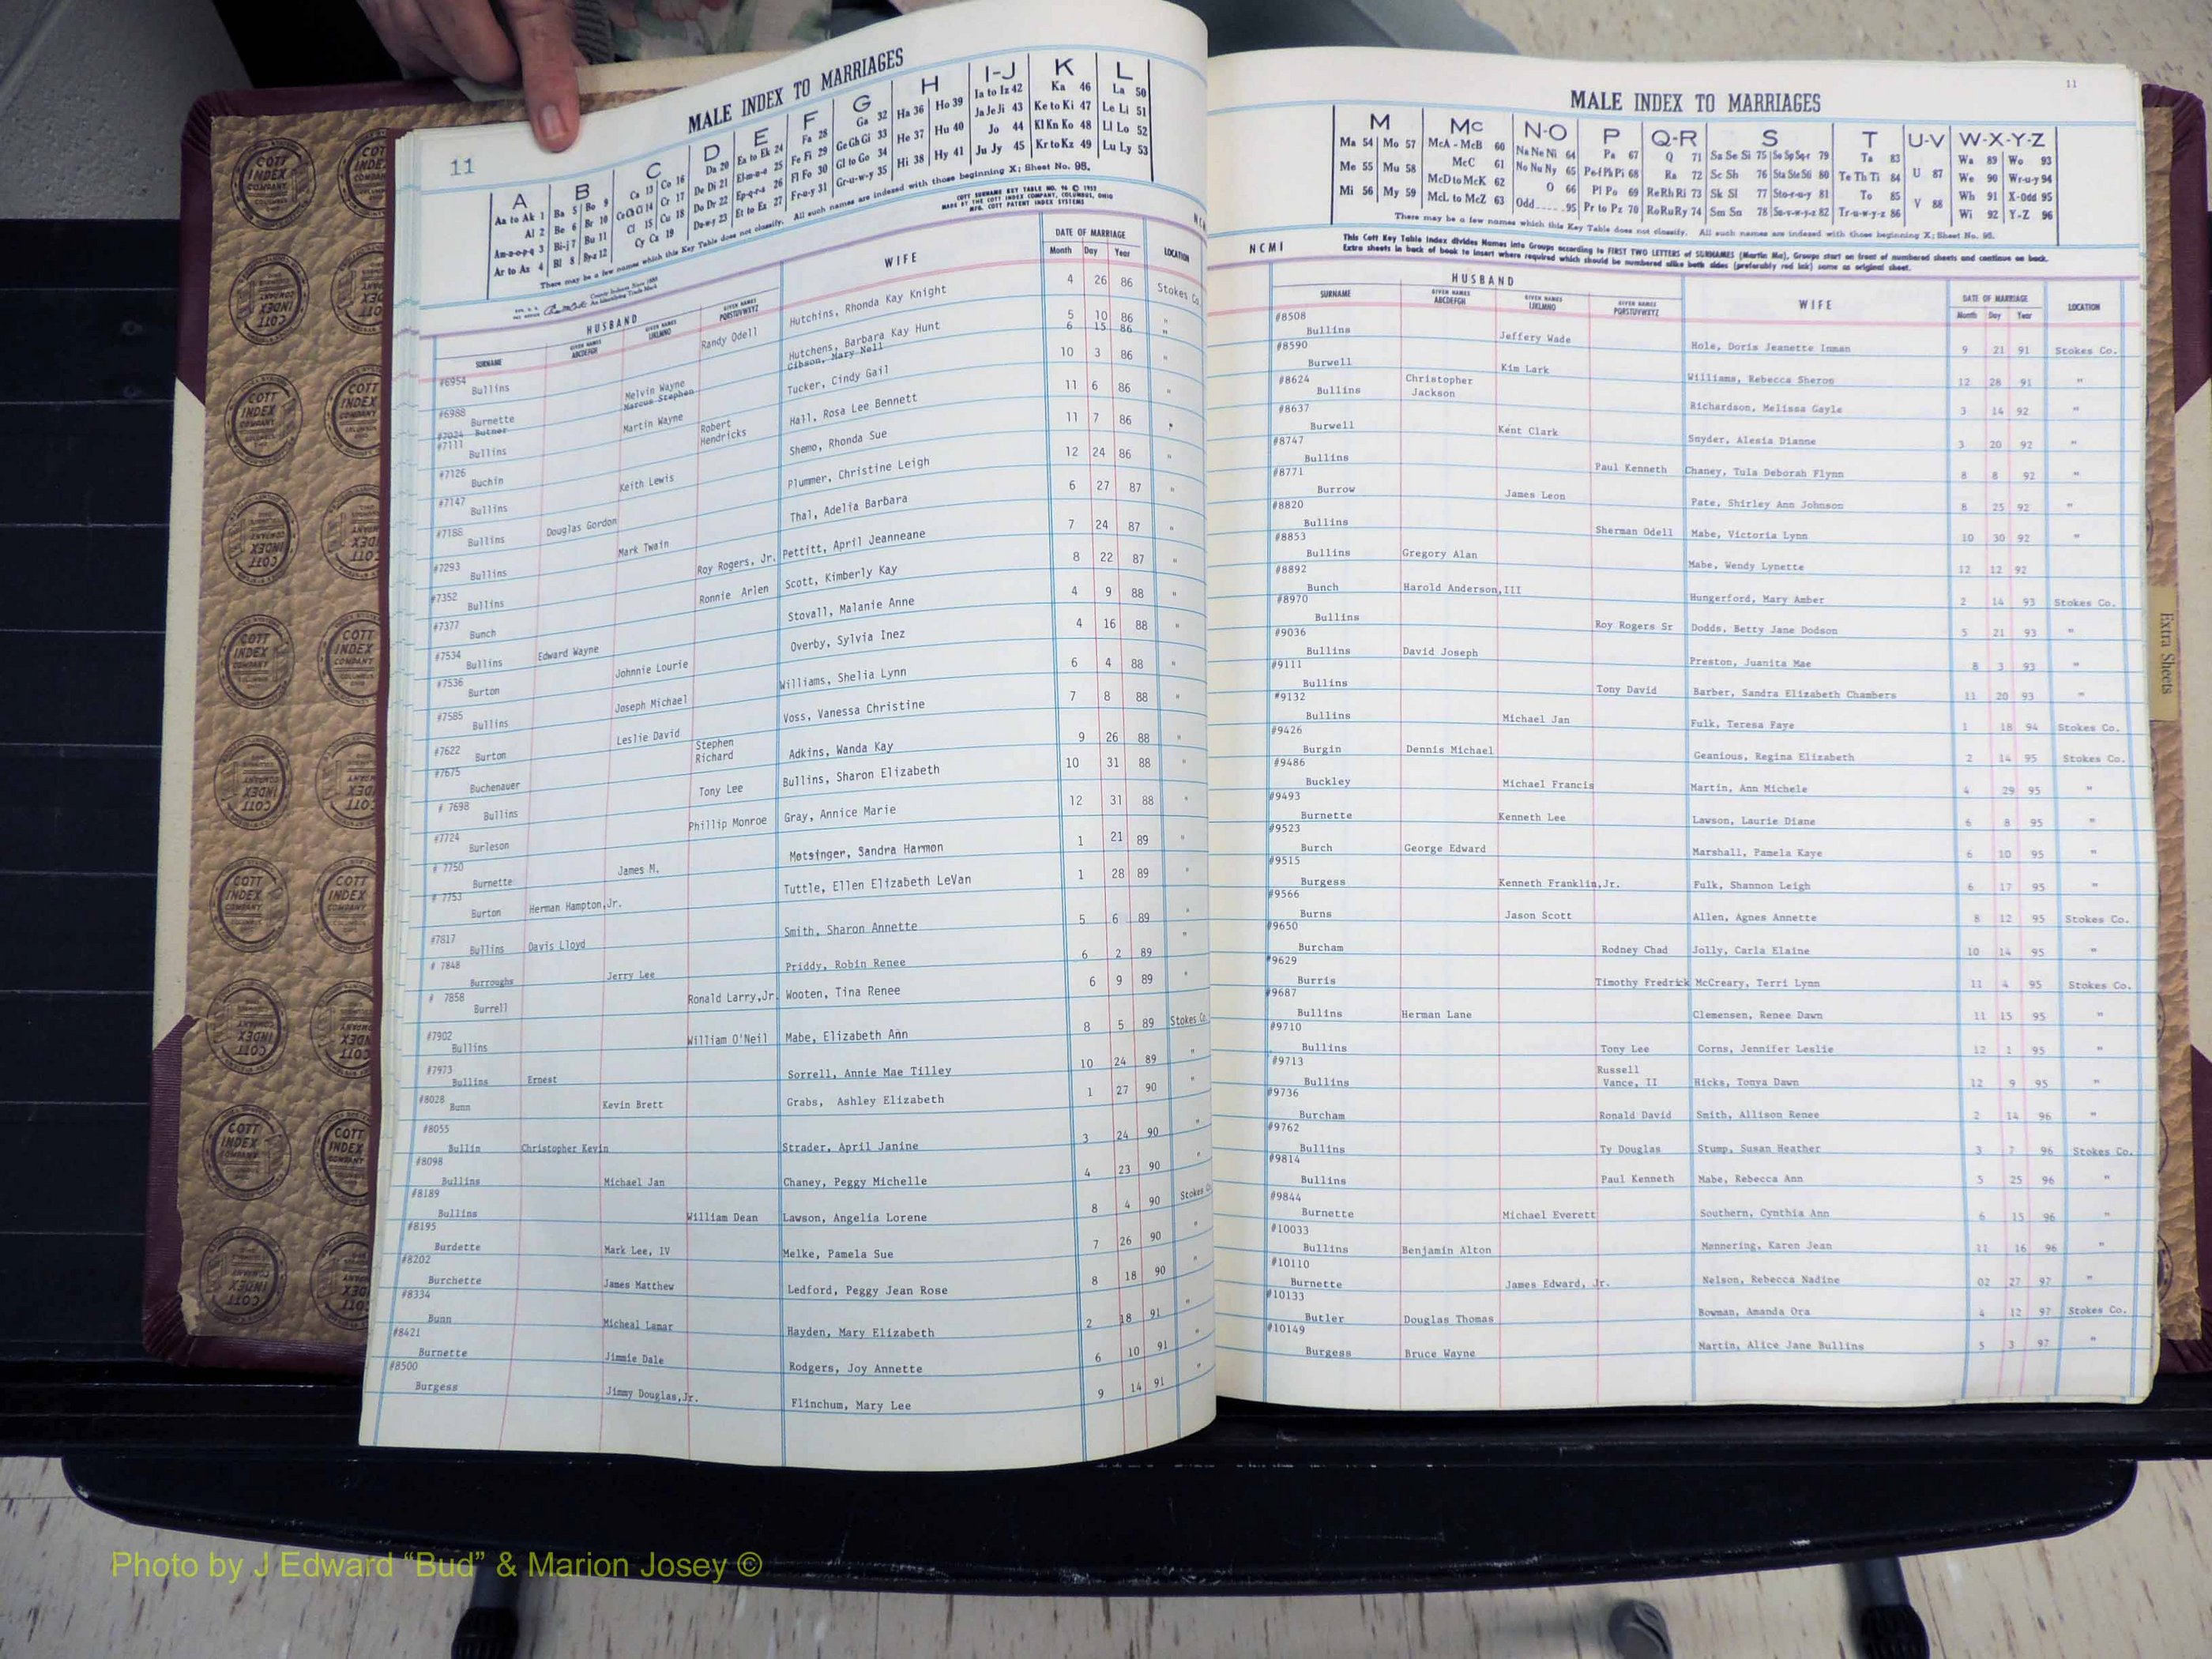 11
MALE INDEX TO MARRIAGES
A B C D E F G H I-J K L
Aa to Ak 1 Ba 5 Bo 9 Ca 13 Co 16 Da 20 Ea to Ek 24 Fa 28 Ga 32 Ha 36 Ho 39 Ia to Iz 42 Ka 46 La 50
Al 2 Be 6 Br 10 Ce Ch Ci 14 Cr 17 De Di 21 El-m-n-o 25 Fe Fi 29 Ge Gh Gi 33 He 37 Hu 40 Ja Je Ji 43 Ke to Ki 47 Le Li 51
Am-n-o-p-q 3 Bi-j 7 Bu 11 Cl 15 Cu 18 Do Dr 22 Ep-q-r-s 26 Fl Fo 30 Gl to Go 34 Hi 38 Hy 41 Jo 44 Kl Kn Ko 48 Ll Lo 52
Ar to Az 4 Bl 8 By-z 12 Cy Cz 19 Du-w-y 23 Et to Ez 27 Fr-u-y 31 Gr-u-w-y 35 Ju Jy 45 Kr to Kz 49 Lu Ly 53
There may be a few names which this Key Table does not classify. All such names are indexed with those beginning X; Sheet No. 95.
COTT SURNAME KEY TABLE NO. 96 © 1953
MADE BY THE COTT INDEX COMPANY, COLUMBUS, OHIO
MFG. COTT PATENT INDEX SYSTEMS
HUSBAND WIFE DATE OF MARRIAGE LOCATION
SURNAME GIVEN NAMES ABCDEFGH GIVEN NAMES IJKLMNO GIVEN NAMES PQRSTUVWXYZ Month Day Year
#6954 Bullins Randy Odell Hutchins, Rhonda Kay Knight 4 26 86 Stokes Co.
#6988 Burnette Melvin Wayne Hutchens, Barbara Kay Hunt 5 10 86 "
#7024 Butner Marcus Stephen Gibson, Mary Nell 6 15 86 "
#7111 Bullins Martin Wayne Tucker, Cindy Gail 10 3 86 "
#7126 Buchin Robert Hendricks Hall, Rosa Lee Bennett 11 6 86 "
#7147 Bullins Keith Lewis Shemo, Rhonda Sue 11 7 86 "
#7186 Bullins Douglas Gordon Plummer, Christine Leigh 12 24 86 "
#7293 Bullins Mark Twain Thal, Adelia Barbara 6 27 87 "
#7352 Bullins Roy Rogers, Jr. Pettitt, April Jeanneane 7 24 87 "
#7377 Bunch Ronnie Arlen Scott, Kimberly Kay 8 22 87 "
#7534 Bullins Edward Wayne Stovall, Malanie Anne 4 9 88 "
#7536 Burton Johnnie Lourie Overby, Sylvia Inez 4 16 88 "
#7585 Bullins Joseph Michael Williams, Shelia Lynn 6 4 88 "
#7622 Burton Leslie David Voss, Vanessa Christine 7 8 88 "
#7675 Buchenauer Stephen Richard Adkins, Wanda Kay 9 26 88 "
# 7698 Bullins Tony Lee Bullins, Sharon Elizabeth 10 31 88 "
#7724 Burleson Phillip Monroe Gray, Annice Marie 12 31 88 "
# 7750 Burnette James M. Motsinger, Sandra Harmon 1 21 89 "
# 7753 Burton Herman Hampton,Jr. Tuttle, Ellen Elizabeth LeVan 1 28 89
#7817 Bullins Davis Lloyd Smith, Sharon Annette 5 6 89 "
# 7848 Burroughs Jerry Lee Priddy, Robin Renee 6 2 89 "
# 7858 Burrell Ronald Larry,Jr. Wooten, Tina Renee 6 9 89 "
#7902 Bullins William O'Neil Mabe, Elizabeth Ann 8 5 89 Stokes Co.
#7973 Bullins Ernest Sorrell, Annie Mae Tilley 10 24 89 "
#8028 Bunn Kevin Brett Grabs, Ashley Elizabeth 1 27 90 "
#8055 Bullin Christopher Kevin Strader, April Janine 3 24 90 "
#8098 Bullins Michael Jan Chaney, Peggy Michelle 4 23 90 "
#8189 Bullins William Dean Lawson, Angelia Lorene 8 4 90 Stokes Co
#8195 Burdette Mark Lee, IV Melke, Pamela Sue 7 26 90 "
#8202 Burchette James Matthew Ledford, Peggy Jean Rose 8 18 90 "
#8334 Bunn Micheal Lamar Hayden, Mary Elizabeth 2 18 91 "
#8421 Burnette Jimmie Dale Rodgers, Joy Annette 6 10 91 "
#8500 Burgess Jimmy Douglas,Jr. Flinchum, Mary Lee 9 14 91 "
11
MALE INDEX TO MARRIAGES
M Mc N-O P Q-R S T U-V W-X-Y-Z
Ma 54 Mo 57 McA - McB 60 Na Ne Ni 64 Pa 67 Q 71 Sa Se Si 75 So Sp Sq-r 79 Ta 83 U 87 Wa 89 Wo 93
Me 55 Mu 58 McC 61 No Nu Ny 65 Pe Pf Ph Pi 68 Ra 72 Sc Sh 76 Sta Ste Sti 80 Te Th Ti 84 V 88 We 90 Wr-u-y 94
Mi 56 My 59 McD to McK 62 O 66 Pl Po 69 Re Rh Ri 73 Sk Sl 77 Sto-r-u-y 81 To 85 Wh 91 X-Odd 95
McL to McZ 63 Odd 95 Pr to Pz 70 Ro Ru Ry 74 Sm Sn 78 Su-v-w-y-z 82 Tr-u-w-y-z 86 Wi 92 Y-Z 96
There may be a few names which this Key Table does not classify. All such names are indexed with those beginning X; Sheet No. 95.
NCMI This Cott Key Table Index divides Names into Groups according to FIRST TWO LETTERS of SURNAMES (Martin Ma), Groups start on front of numbered sheets and continue on back.
Extra sheets in back of book to insert where required which should be numbered alike both sides (preferably red ink) same as original sheet.
HUSBAND WIFE DATE OF MARRIAGE LOCATION
SURNAME GIVEN NAMES ABCDEFGH GIVEN NAMES IJKLMNO GIVEN NAMES PQRSTUVWXYZ Month Day Year
#8508 Bullins Jeffery Wade Hole, Doris Jeanette Inman 9 21 91 Stokes Co.
#8590 Burwell Kim Lark Williams, Rebecca Sheron 12 28 91 "
#8624 Bullins Christopher Jackson Richardson, Melissa Gayle 3 14 92 "
#8637 Burwell Kent Clark Snyder, Alesia Dianne 3 20 92 "
#8747 Bullins Paul Kenneth Chaney, Tula Deborah Flynn 8 8 92 "
#8771 Burrow James Leon Pate, Shirley Ann Johnson 8 25 92 "
#8820 Bullins Sherman Odell Mabe, Victoria Lynn 10 30 92 "
#8853 Bullins Gregory Alan Mabe, Wendy Lynette 12 12 92
#8892 Bunch Harold Anderson,III Hungerford, Mary Amber 2 14 93 Stokes Co.
#8970 Bullins Roy Rogers Sr Dodds, Betty Jane Dodson 5 21 93 "
#9036 Bullins David Joseph Preston, Juanita Mae 8 3 93 "
#9111 Bullins Tony David Barber, Sandra Elizabeth Chambers 11 20 93 "
#9132 Bullins Michael Jan Fulk, Teresa Faye 1 18 94 Stokes Co.
#9426 Burgin Dennis Michael Geanious, Regina Elizabeth 2 14 95 Stokes Co.
#9486 Buckley Michael Francis Martin, Ann Michele 4 29 95 "
#9493 Burnette Kenneth Lee Lawson, Laurie Diane 6 8 95 "
#9523 Burch George Edward Marshall, Pamela Kaye 6 10 95 "
#9515 Burgess Kenneth Franklin,Jr. Fulk, Shannon Leigh 6 17 95 "
#9566 Burns Jason Scott Allen, Agnes Annette 8 12 95 Stokes Co.
#9650 Burcham Rodney Chad Jolly, Carla Elaine 10 14 95 "
#9629 Burris Timothy Fredrick McCreary, Terri Lynn 11 4 95 Stokes Co.
#9687 Bullins Herman Lane Clemensen, Renee Dawn 11 15 95 "
#9710 Bullins Tony Lee Corns, Jennifer Leslie 12 1 95 "
#9713 Bullins Russell Vance, II Hicks, Tonya Dawn 12 9 95 "
#9736 Burcham Ronald David Smith, Allison Renee 2 14 96 "
#9762 Bullins Ty Douglas Stump, Susan Heather 3 7 96 Stokes Co.
#9814 Bullins Paul Kenneth Mabe, Rebecca Ann 5 25 96 "
#9844 Burnette Michael Everett Southern, Cynthia Ann 6 15 96 "
#10033 Bullins Benjamin Alton Mannering, Karen Jean 11 16 96 "
#10110 Burnette James Edward, Jr. Nelson, Rebecca Nadine 02 27 97 "
#10133 Butler Douglas Thomas Bowman, Amanda Ora 4 12 97 Stokes Co.
#10149 Burgess Bruce Wayne Martin, Alice Jane Bullins 5 3 97 "
Extra Sheets
COTT INDEX COMPANY
Photo by J Edward “Bud” & Marion Josey ©